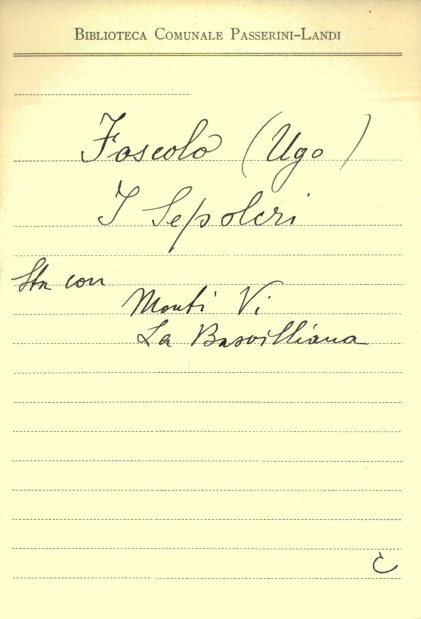 BIBLIOTECA COMUNALE PASSERINI-LANDI
Foscolo (Ugo)
I Sepolcri
Sta con
Monti Vi
La Basvilliana
C